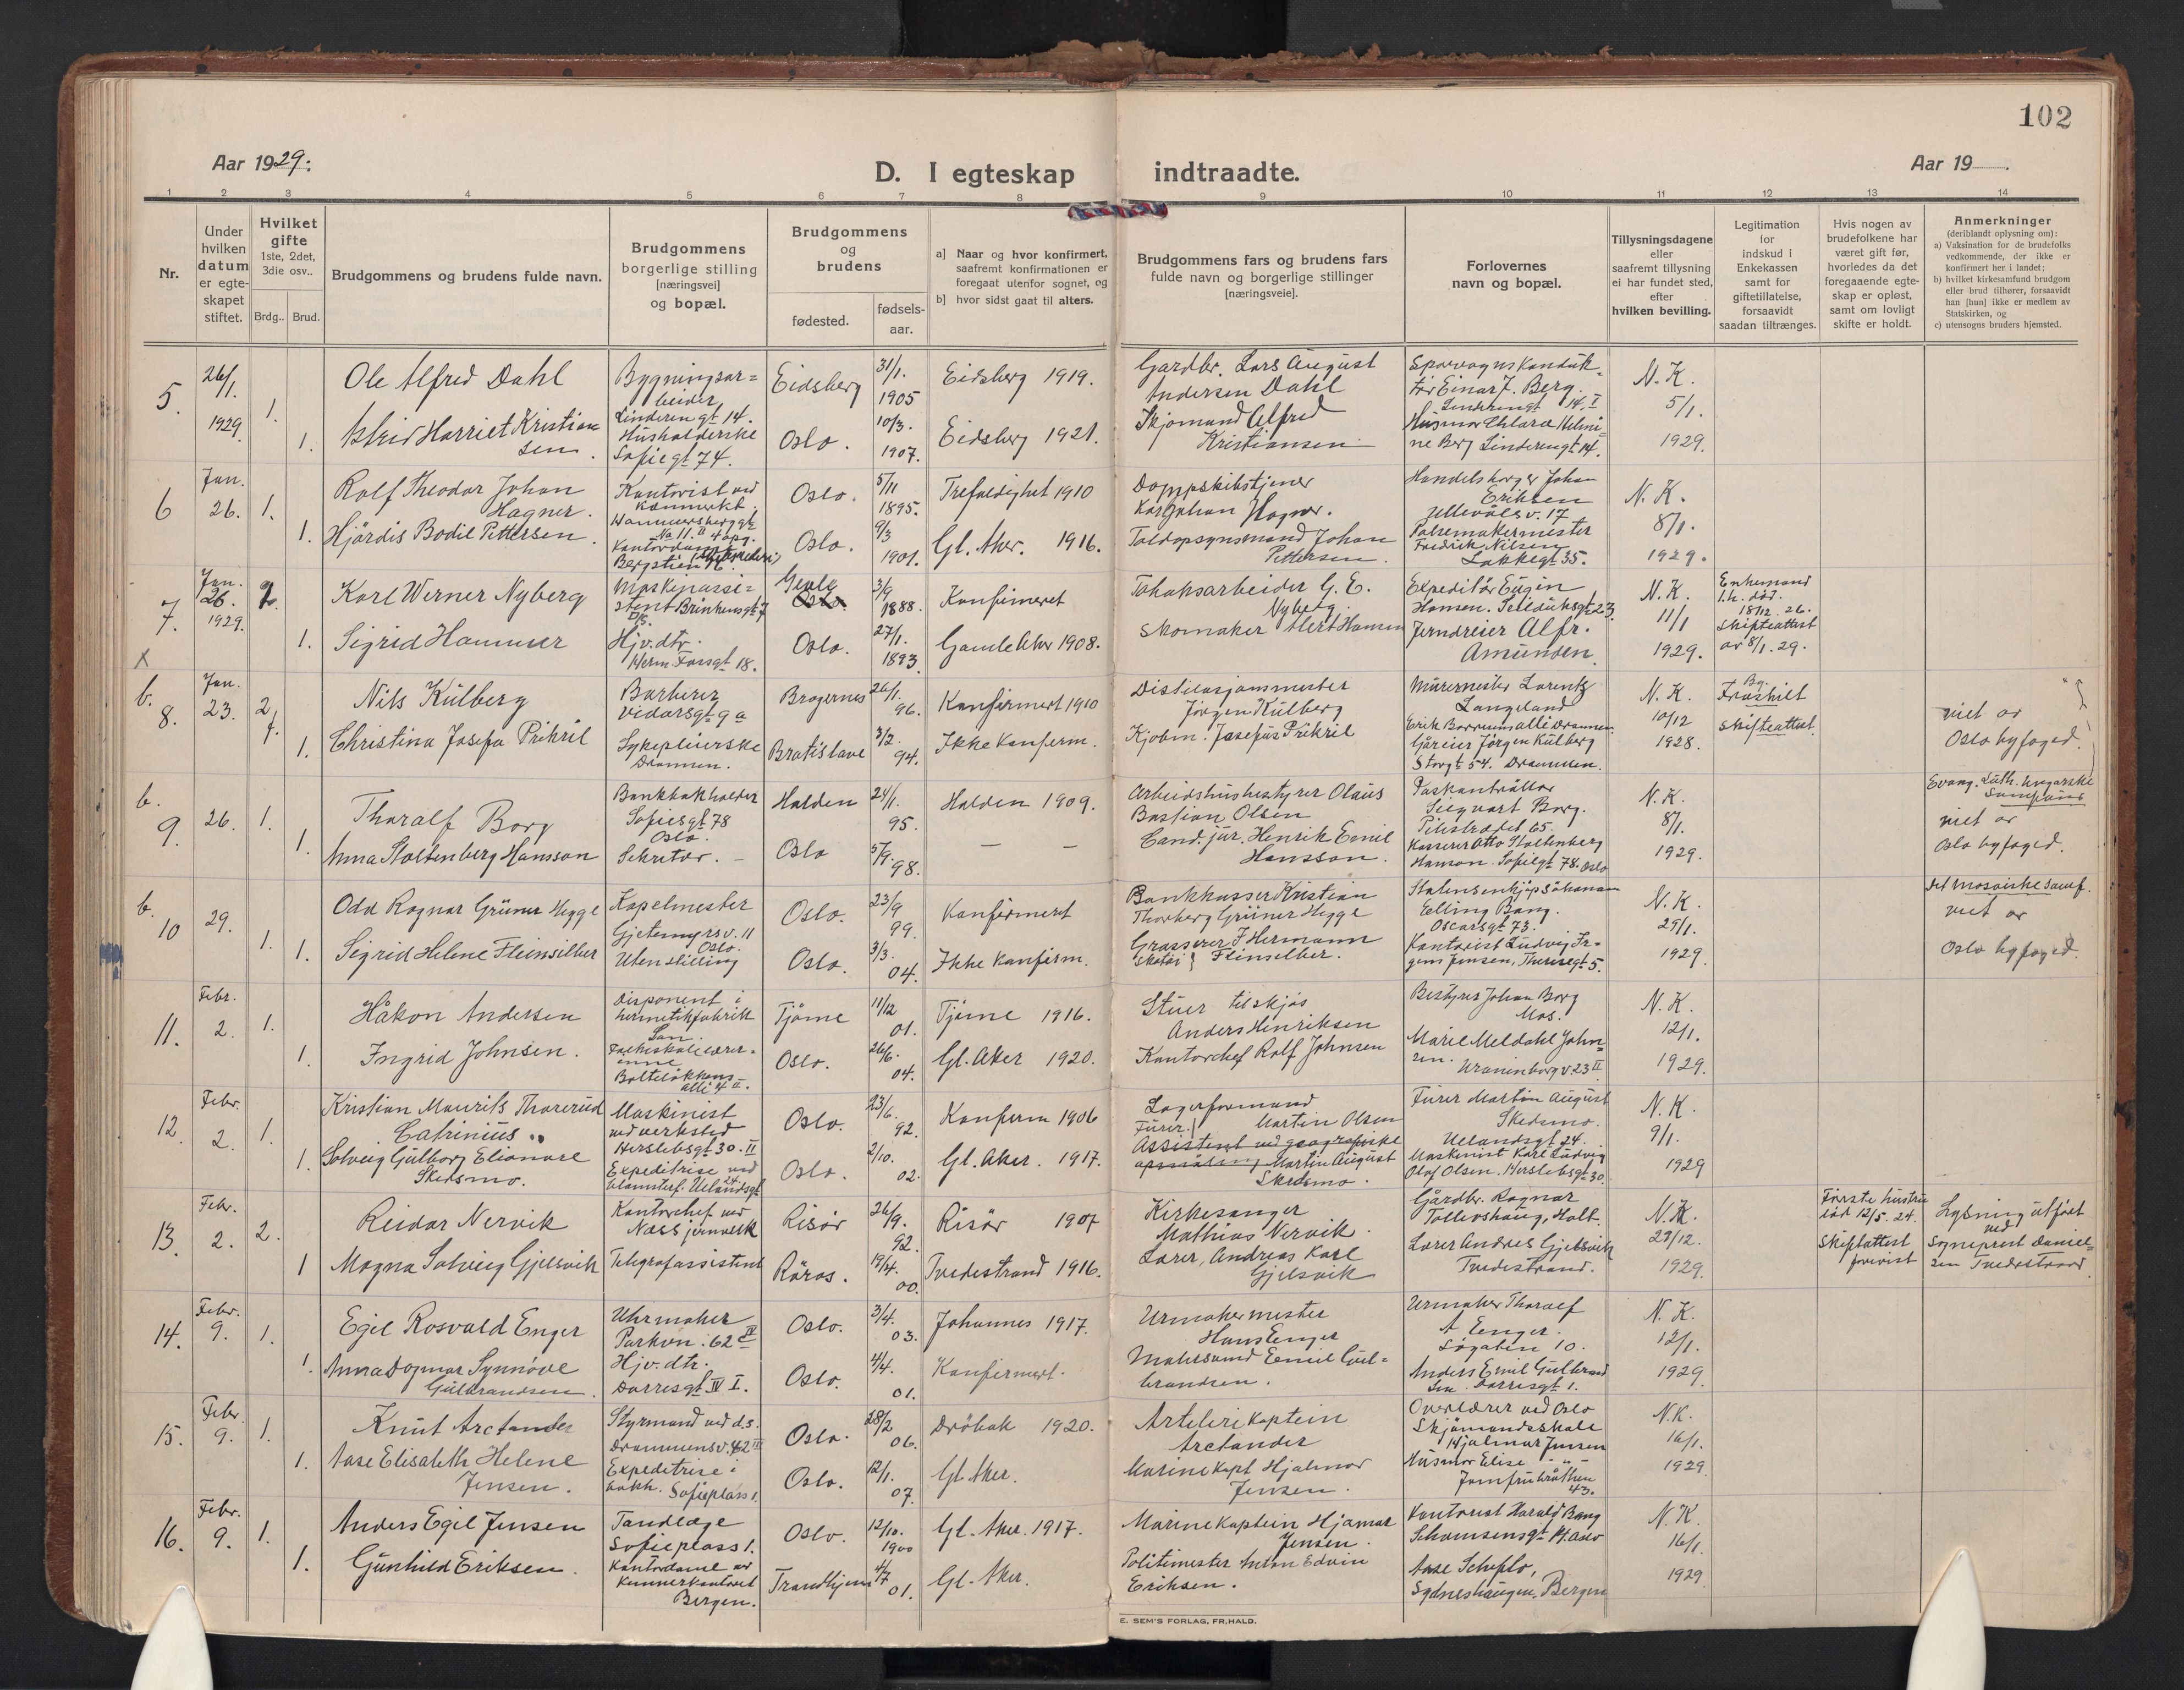 102
Aar 1929.
D. I egteskap indtraadte.
Aar 19
1 2 3 4 5 6 7 8 9 10 11 12 13 14
Nr.
Under hvilken datum er egte-skapet stiftet.
Hvilket gifte 1ste, 2det, 3die osv..
Brdg.. Brud.
Brudgommens og brudens fulde navn.
Brudgommens borgerlige stilling [næringsvei] og bopæl.
Brudgommens og brudens
fødested.
fødsels-aar.
a] Naar og hvor konfirmert, saafremt konfirmationen er foregaat utenfor sognet, og
b] hvor sidst gaat til alters.
Brudgommens fars og brudens fars fulde navn og borgerlige stillinger [næringsveie].
Forlovernes navn og bopæl.
Tillysningsdagene eller saafremt tillysning ei har fundet sted, efter hvilken bevilling.
Legitimation for indskud i Enkekassen samt for giftetillatelse, forsaavidt saadan tiltrænges.
Hvis nogen av brudefolkene har været gift før, hvorledes da det foregaaende egte-skap er opløst, samt om lovligt skifte er holdt.
Anmerkninger (deriblandt oplysning om):
a) Vaksination for de brudefolks vedkommende, der ikke er konfirmert her i landet;
b) hvilket kirkesamfund brudgom eller brud tilhører, forsaavidt han [hun] ikke er medlem av Statskirken, og
c) utensogns bruders hjemsted.
5. 26/1. 1929. 1. Ole Alfred Dahl
Bygningsar=beider Linderngt 14.
Eidsberg 31/1. 1905
Eidsberg 1919.
Gardbr. Lars August Andersen Dahl
Sporvogns Konduk-tør Einar J. Berg. Linderngt 14. I
N. K. 5/1. 1929.
1. Astrid Harriet Kristiansen.
Husholderske Sofiegt 74.
Oslo. 10/3. 1907.
Eidsberg 1921.
Skjomand Alfred Kristiansen
Husmor Chlara Helmi=ne Berg Linderngt 14.
6 Jan. 26. 1. Rolf Theodor Johan Hagner.
Kontorist ved
Oslo. 5/11 1895.
Trefoldighet 1910
Karl Johan Hagner.
Handelsborger Johan Eriksen Ullevålsv. 17
N. K. 8/1. 1929.
1. Hjördis Bodil Pettersen
Oslo. 9/3 1901.
Gl. Aker. 1916.
Toldopsynsmand Johan Pettersen
Pølsemakermester Fredrik Nilsen Lakkegt 35.
7. Jan. 26. 1929. 2. Karl Werner Nyberg
Gevle 3/9 1888.
Konfirmeret
Tobaksarbeider G. E. Nyberg.
Expeditør Eugen Hansen. Seilduksgt 23
N. K. 11/1 1929.
Enkemand 1.h. død. 18/12. 26. Skifteattest av 8/1. 29.
X
1. Sigrid Hammer
Hjv. dtr. Herm. Fossgt 18.
Oslo. 27/1. 1893
Gamle Aker 1908.
Skomaker Albert Hansen
Jerndreier Alfr. Amundsen.
b. 8. Jan. 23. 2. Nils Kulberg
Barberer Vidarsgt 9a
Bragernes 26/1. 96.
Konfirmert 1910
Jörgen Kulberg
Murermester Lorentz Langeland
N. K. 10/12 1928.
Fraskilt skifteattest.
viet av Oslo byfoged.
1. Christina Josefa Prikril
Sykepleierske Drammen.
Bratislave 3/2. 94.
Ikke Konferm.
Kjøbm. Josefus Prikril
Gåreier Jörgen Kulberg Storgt 54. Drammen.
Evang. Luth. Ungarske
b. 9. 26. 1. Thoralf Borg
Bankbokholder Sofiesgt 78 Oslo.
Halden 24/1. 95.
Halden 1909.
Arbeidshusbestyrer Olaus Bastian Olsen
Paskontrollør Sigvart Borg. Pilestrædet 65.
N. K. 8/1. 1929.
viet av Oslo byfoged.
1. Anna Stoltenberg Hansson
Sekretær. -
Oslo 5/9. 98.
Cand. jur. Henrik Emil Hansson.
Kasserer Otto Stoltenberg Hanson. Sofiegt 78. Oslo
b. 10 29. 1. Odd Ragnar Grüner Hegge
Kapelmester Gjetemyrsv. 11 Oslo.
Oslo. 23/9 99.
Konfirmeret
Bankkasser Kristian Thorberg Grüner Hegge
Elling Bang. Oscarsgt 73.
N. K. 29/1. 1929.
Det mosaiske samf. viet av Oslo byfoged.
1. Sigrid Helene Fleinsilber
Uten stilling
Oslo. 3/3. 04.
Ikke Konfirm.
Grosserer J Hermann Flinselber.
Kontorist Ludvig Jensen, Theresegt 5.
11. Febr. 2. 1. Håkon Andersen
Disponent i hermetikfabrik Son
Tjöme 11/12 01.
Tjöme 1916.
Stuer tilskjøs Anders Henriksen
Bestyrer Johan Borg Mos.
N. K. 12/1. 1929.
1. Ingrid Johnsen.
Folkeskolelærer=inne Bolteløkkens alle 4 II.
Oslo. 26/6. 04.
Gl. Aker 1920.
Kontorchef Rolf Johnsen
Marie Meldahl John=sen. Uranienborgv. 23 II
12 Febr. 2. 1. Kristian Maurits Thorerud Cathinius
Maskinist ved verksted Herslebsgt 30. II
Oslo. 23/6. 92.
Konferm 1906
Lagerformand Martin Olsen
Furer Martin August Skedsmo. Uelandsgt 24.
N. K. 9/1. 1929
1. Solveig Gulborg Elianore Skedsmo.
Expeditrise ved blomsterf. Uelandsgt 24
Oslo. 2/10. 02.
Gl. Aker. 1917.
Furer. Assistent ved geografiske opmåling Martin August Skedsmo.
Maskinist Karl Ludvig Olaf Olsen. Herslebsgt 30.
13. Febr. 2. 2. Reidar Nervik
Kontorchef ved Næss jernverk
Risör 26/9. 92.
Risör 1907
Kirkesanger Mathias Nervik.
Gårdbr. Ragnar Tollevshaug, Holt.
N. K. 29/12. 1929.
Første hustru död 12/5. 24. Skifteattest forevist
Lysning utført ved Sogneprest Daniel=sen Tvedestrand
1 Magna Solveig Gjelsvik
Telegrafassistent
Röros. 19/4. 00.
Tvedestrand 1916.
Lærer, Andreas Karl Gjelsvik
Lærer Andres Gjelsvik Tvedestrand.
14. Febr. 9. 1. Egil Rosvald Enger
Uhrmaker Parkvn. 62 IV
Oslo. 3/4. 03.
Johannes 1917.
Urmakermester Hans Enger
Urmaker Thoralf A Enger. Søgaten 10.
N. K. 12/1. 1929
1. Anna Dagmar Synnöve Gulbrandsen.
Hjv. dtr. Dovresgt IV I.
Oslo. 4/4. 01.
Konfirmert.
Emil Gul=brandsen.
Anders Emil Gulbrandsen. Dovresgt 1.
15. Febr. 9. 1. Knut Arctander
Styrmand ved d.s. Drammensv. 42 III
Oslo. 28/2 06.
Dröbak 1920.
Artileri kaptein Arctander
Overlærer ved Oslo Skjömandsskole Hjalmar Jensen
N. K. 16/1. 1929.
1. Aase Elisabeth Helene Jensen.
Expeditrise i bokh. Sofieplass 1.
Oslo. 12/1. 07.
Gl. Aker.
Marinekapt Hjalmar Jensen.
Husmor Elise -"- Jomfrubråthen 43.
16. Febr. 9. 1. Anders Egil Jensen
Tandlæge Sofieplass 1.
Oslo. 12/10. 1900
Gl. Aker. 1917.
Marinekaptein Hjamar Jensen.
Kontorist Harald Bang
N. K. 16/1. 1929
1. Gunhild Eriksen.
Kontordame av Kemnerkontoret Bergen.
Trondhjem 4/7 01.
Gl. Aker.
Politimester Anton Edvin Eriksen.
Aase Scheplo, Sydneshaugen. Bergen
E. SEM'S FORLAG, FR.HALD.